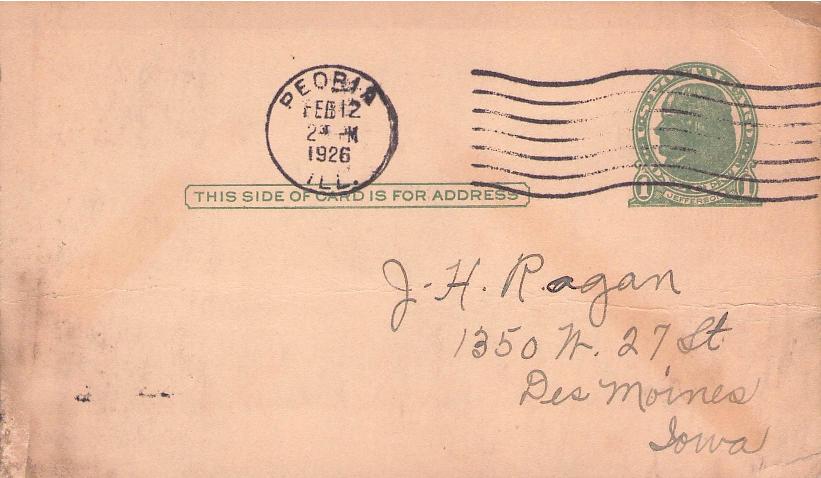 PEORIA
FEB 12
2 PM
1926
ILL.
U.S. POSTAL CARD
1 1
JEFFERSON
THIS SIDE OF CARD IS FOR ADDRESS
J. H. Ragan
1350 W. 27 St
Des Moines
Iowa